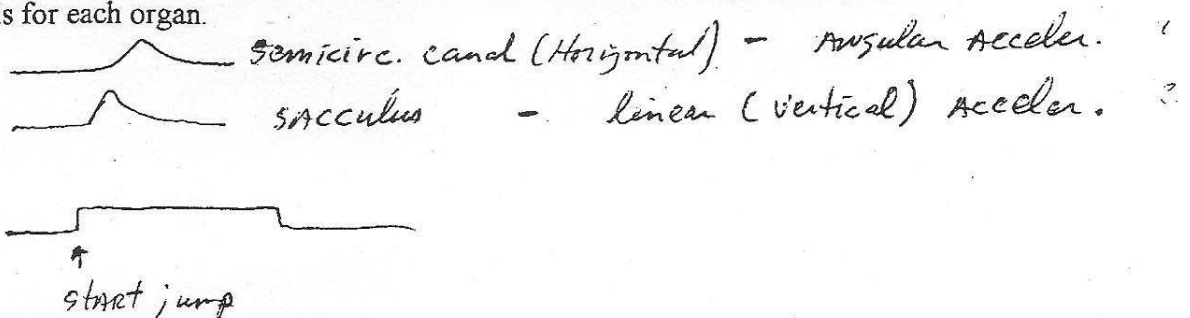 is for each organ.
Semicirc. canal (Horizontal) - Angular Acceler.
SAcculus - linear (vertical) Acceler.
StARt jump